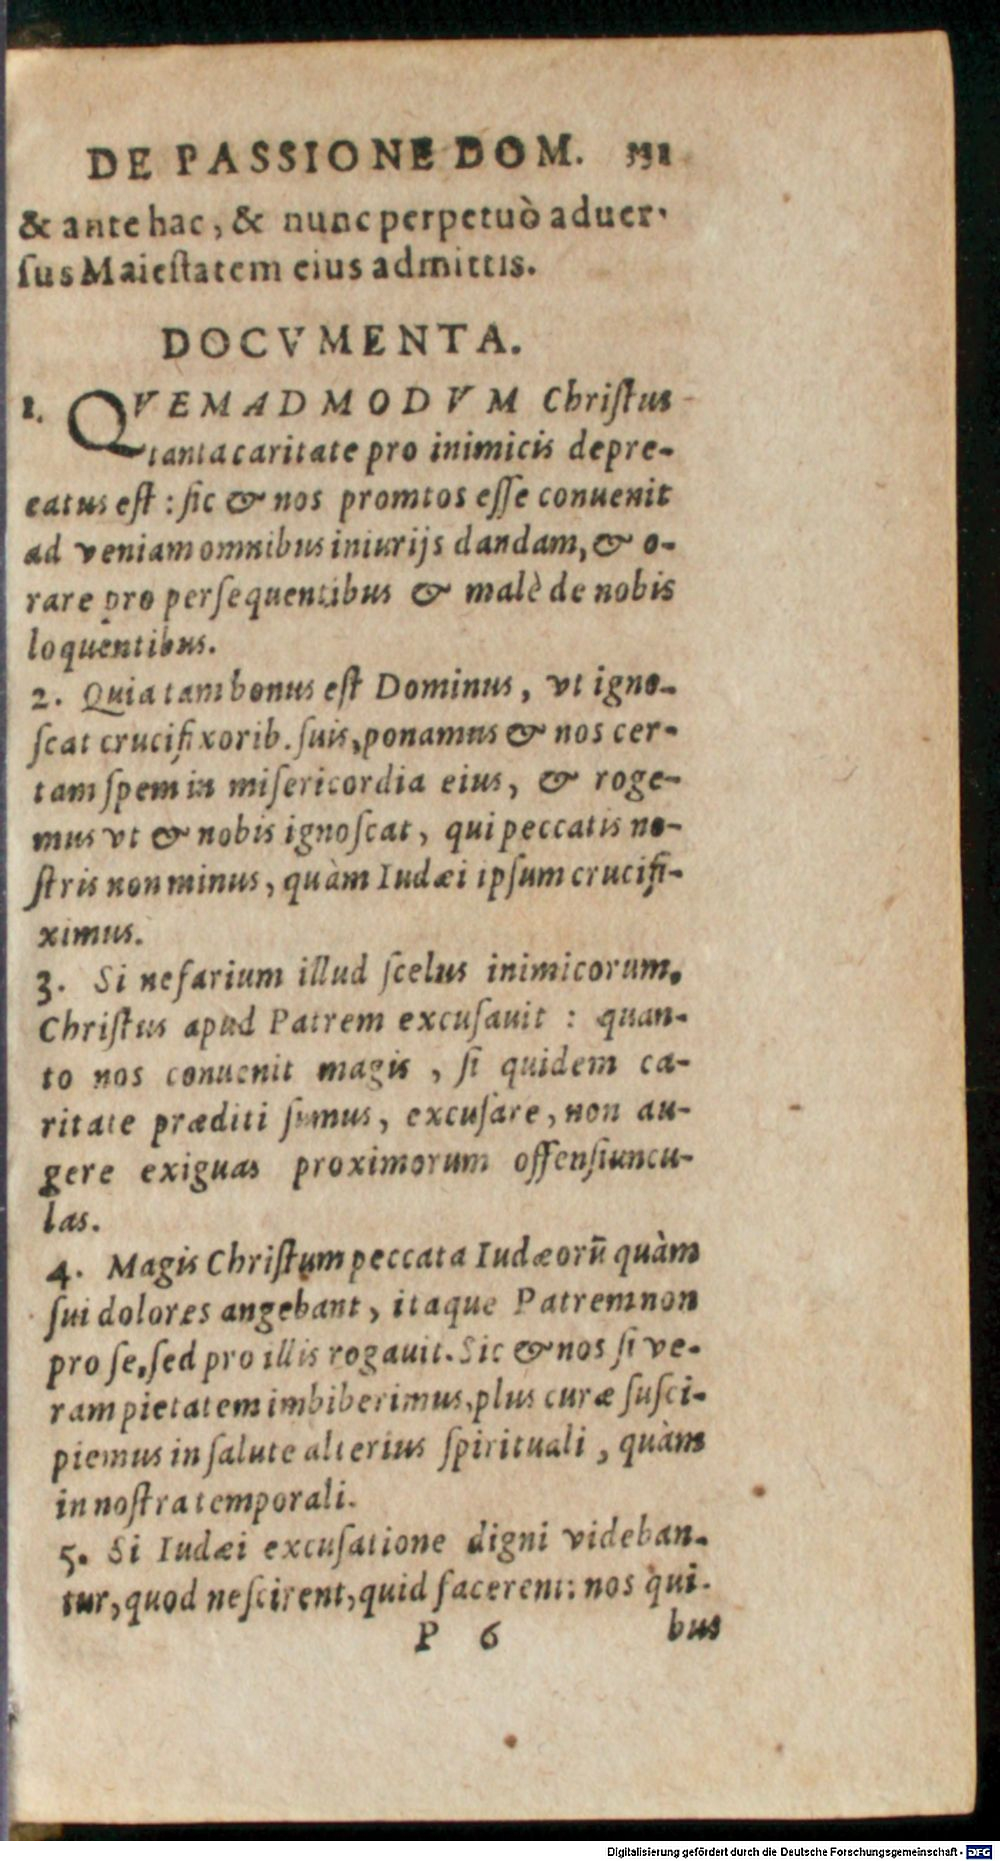 DE PASSIONE DOM.
& ante hac, & nunc perpetuò aduer-
ſus Maieſtatem eius admittis.
DOCVMENTA.
1. QVEMADMODVM Chriſtus
tanta caritate pro inimicis depre-
catus eſt: ſic & nos promtos eſſe conuenit
ad veniam omnibus iniurijs dandam, & o-
rare pro perſequentibus & malè de nobis
loquentibus.
2. Quia tam bonus eſt Dominus, vt igno-
ſcat crucifixorib. ſuis, ponamus & nos cer-
tam ſpem in miſericordia eius, & roge-
mus vt & nobis ignoſcat, qui peccatis no-
ſtris non minus, quàm Iudæi ipſum crucifi-
ximus.
3. Si nefarium illud ſcelus inimicorum,
Chriſtus apud Patrem excuſauit : quan-
to nos conuenit magis, ſi quidem ca-
ritate præditi ſumus, excuſare, non au-
gere exiguas proximorum offenſiuncu-
las.
4. Magis Chriſtum peccata Iudæorū quàm
ſui dolores angebant, itaque Patrem non
pro ſe, ſed pro illis rogauit. Sic & nos ſi ve-
ram pietatem imbiberimus, plus curæ ſuſci-
piemus in ſalute alterius ſpirituali, quàm
in noſtra temporali.
5. Si Iudæi excuſatione digni videban-
tur, quod neſcirent, quid facerent: nos qui-
P 6 bus
Digitalisierung gefördert durch die Deutsche Forschungsgemeinschaft - DFG